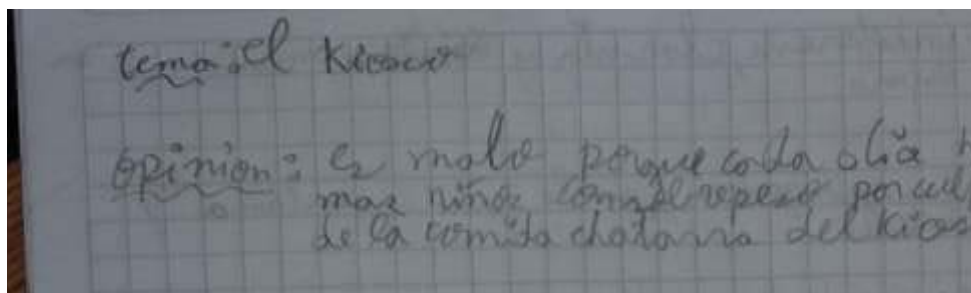 tema: el Kiosco
opinion: Es malo porque cada día h
mas niños con sobrepeso por cul
de la comida chatarra del Kios